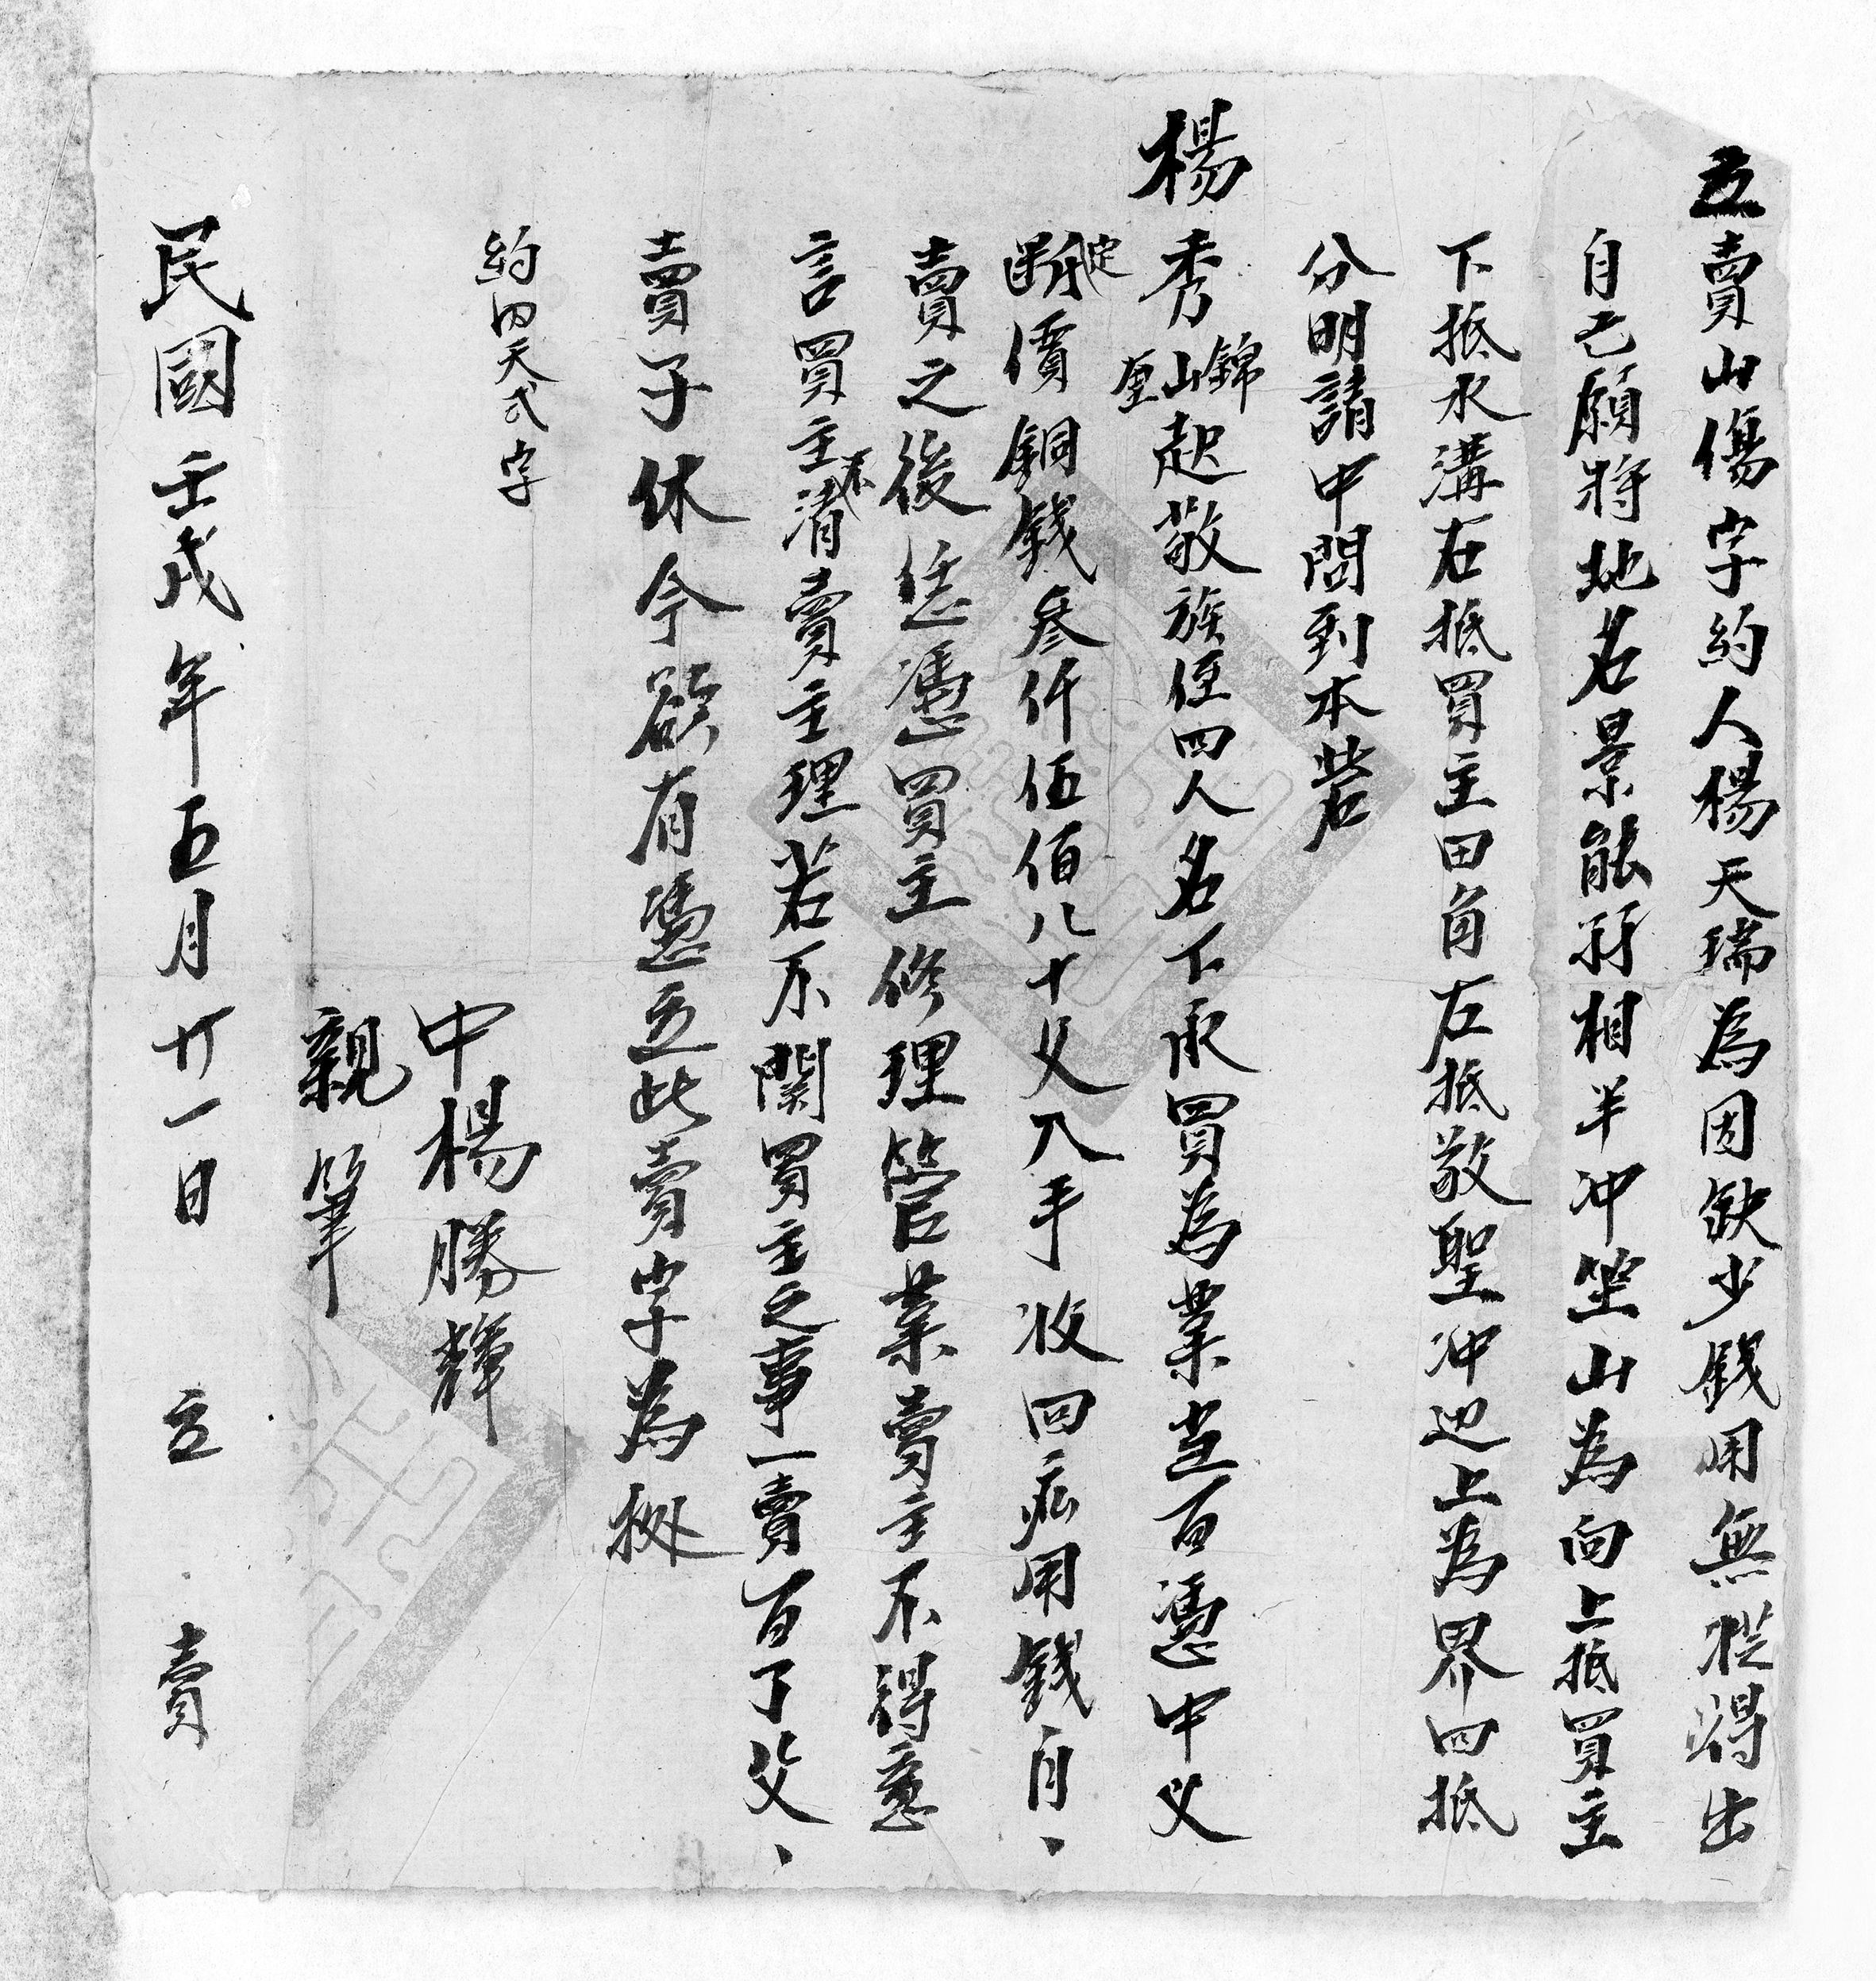 立賣山傷字約人楊天瑞為因缺少錢用無從得出
自己願將地名景能孖相半冲坐山為向上抵買主
下抵水溝右抵買主田角左抵敬聖冲边上為界四抵
分明請中問到本砦
楊秀錦山厘起敬族侄四人名下承買為業當面憑中义
定断價銅錢叁仟伍佰八十文入手收回應用錢自、
賣之後恁憑買主修理管業賣主不得意
言買主不清賣主理若不関買主之事一賣百了父、
賣子休今欲有憑立此賣字為拠
約内天弍字
中楊勝輝
親筆
民國壬戌年五月廿一日 立 賣